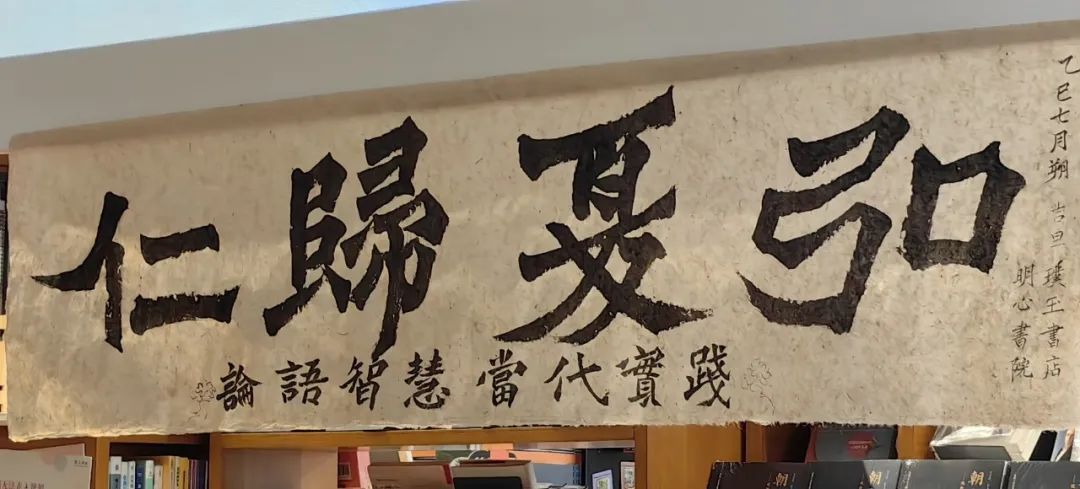 弘夏歸仁
論語智慧當代實踐
乙巳七月朔 吉旦 璞玉書店
明心書院
朝
朝
朝